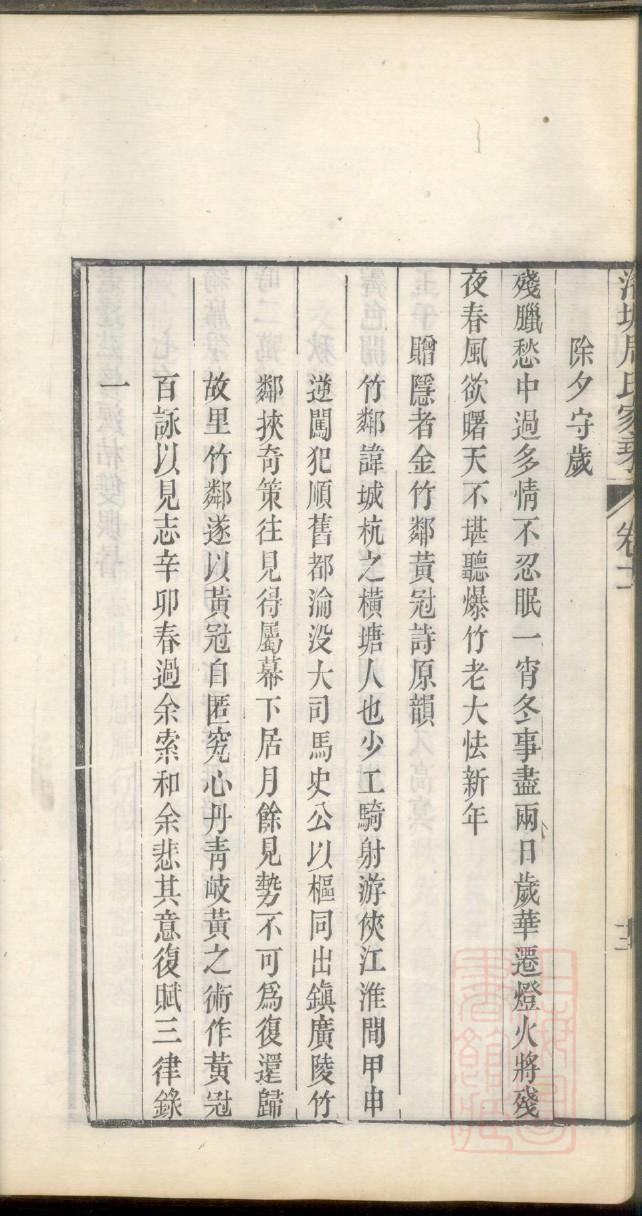 周氏家乘
卷十二
除夕守歲
殘臘愁中過多情不忍眠一宵冬事盡兩日歲華遷燈火將殘
夜春風欲曙天不堪聽爆竹老大怯新年
贈隱者金竹鄰黃冠詩原韻
竹鄰諱城杭之橫塘人也少工騎射游俠江淮間甲申
逆闖犯順舊都淪没大司馬史公以樞同出鎮廣陵竹
鄰挾奇策往見得屬幕下居月餘見勢不可為復還歸
故里竹鄰遂以黃冠自匿究心丹青岐黃之術作黃冠
百詠以見志辛卯春過余索和余悲其意復賦三律錄
一